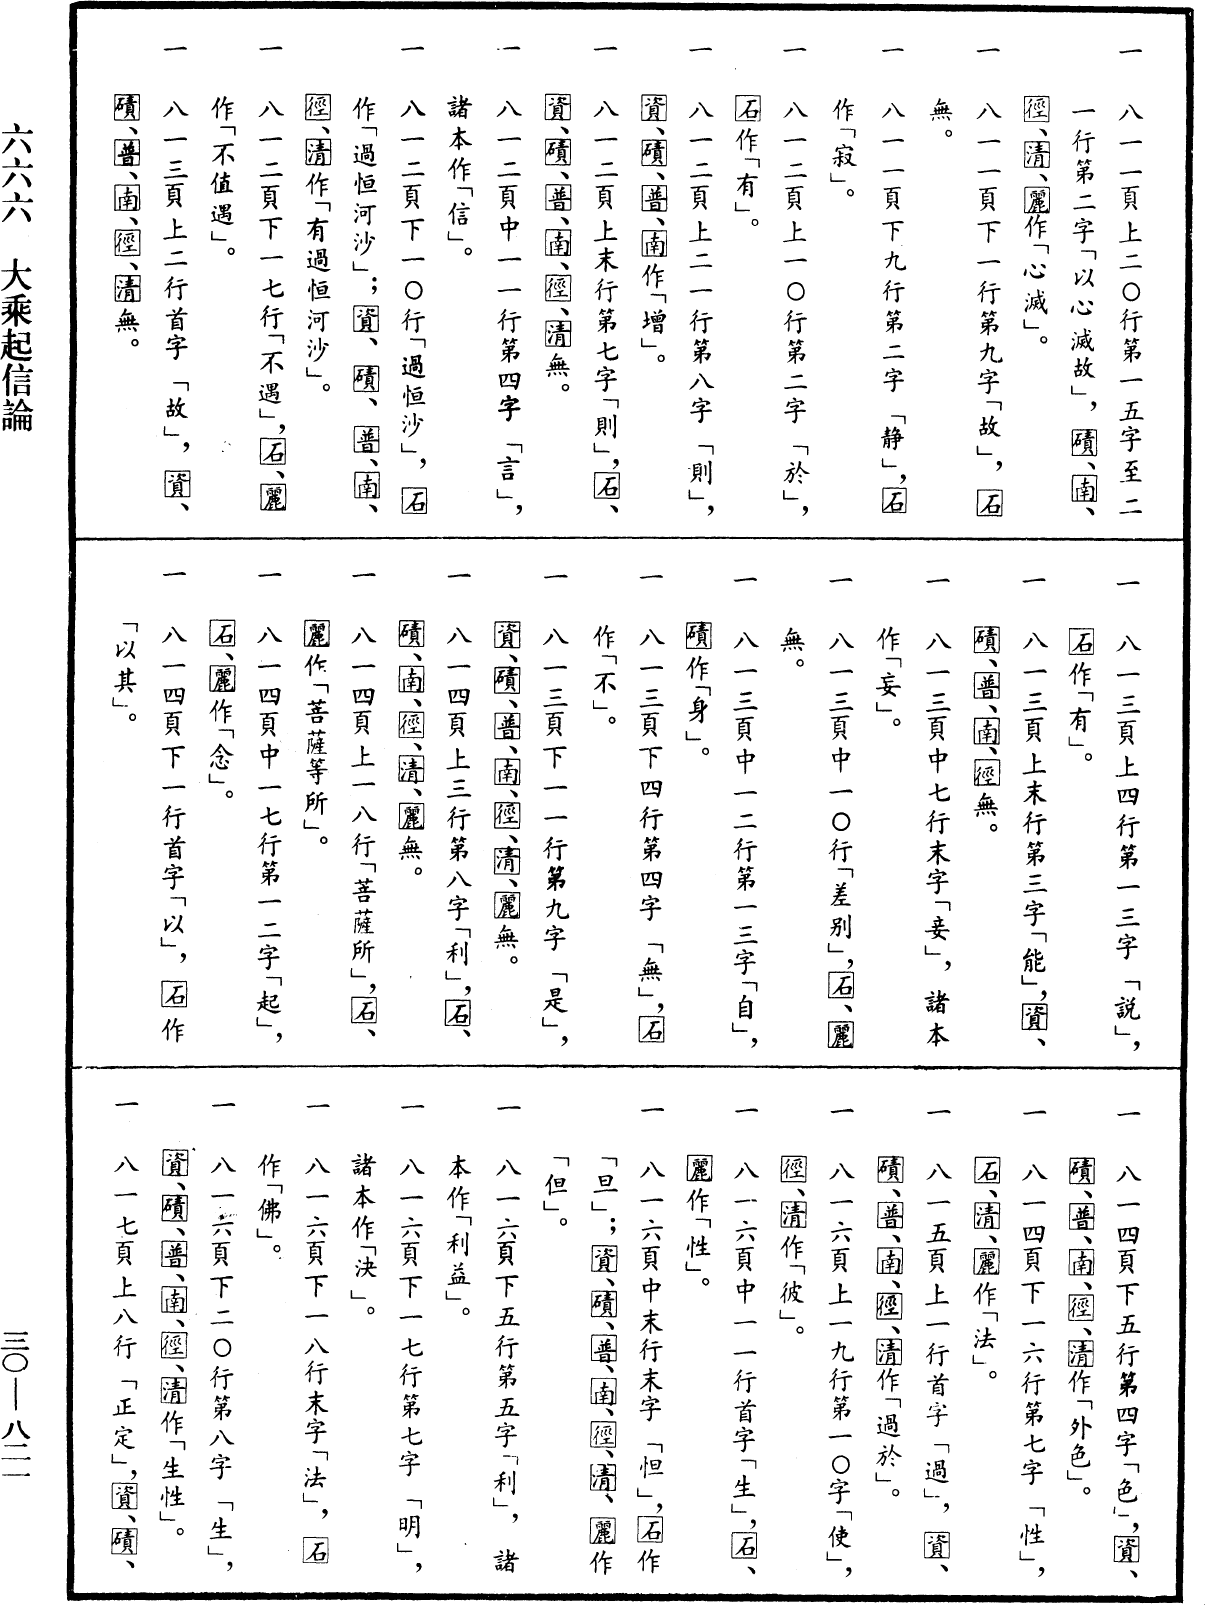 六六六　大乘起信論
一　八一一頁上二〇行第一五字至二
一行第二字「以心滅故」，磧、南、
徑、清、麗作「心滅」。
一　八一一頁下一行第九字「故」，石
無。
一　八一一頁下九行第二字「静」，石
作「寂」。
一　八一二頁上一〇行第二字「於」，
石作「有」。
一　八一二頁上二一行第八字「則」，
資、磧、普、南作「增」。
一　八一二頁上末行第七字「則」，石、
資、磧、普、南、徑、清無。
一　八一二頁中一一行第四字「言」，
諸本作「信」。
一　八一二頁下一〇行「過恒沙」，石
作「過恒河沙」；資、磧、普、南、
徑、清作「有過恒河沙」。
一　八一二頁下一七行「不遇」，石、麗
作「不值遇」。
一　八一三頁上二行首字「故」，資、
磧、普、南、徑、清無。
一　八一三頁上四行第一三字「説」，
石作「有」。
一　八一三頁上末行第三字「能」，資、
磧、普、南、徑無。
一　八一三頁中七行末字「妾」，諸本
作「妄」。
一　八一三頁中一〇行「差别」，石、麗
無。
一　八一三頁中一二行第一三字「自」，
磧作「身」。
一　八一三頁下四行第四字「無」，石
作「不」。
一　八一三頁下一一行第九字「是」，
資、磧、普、南、徑、清、麗無。
一　八一四頁上三行第八字「利」，石、
磧、南、徑、清、麗無。
一　八一四頁上一八行「菩薩所」，石、
麗作「菩薩等所」。
一　八一四頁中一七行第一二字「起」，
石、麗作「念」。
一　八一四頁下一行首字「以」，石作
「以其」。
一　八一四頁下五行第四字「色」，資、
磧、普、南、徑、清作「外色」。
一　八一四頁下一六行第七字「性」，
石、清、麗作「法」。
一　八一五頁上一行首字「過」，資、
磧、普、南、徑、清作「過於」。
一　八一六頁上一九行第一〇字「使」，
徑、清作「彼」。
一　八一六頁中一一行首字「生」，石、
麗作「性」。
一　八一六頁中末行末字「怛」，石作
「旦」；資、磧、普、南、徑、清、麗作
「但」。
一　八一六頁下五行第五字「利」，諸
本作「利益」。
一　八一六頁下一七行第七字「明」，
諸本作「决」。
一　八一六頁下一八行末字「法」，石
作「佛」。
一　八一六頁下二〇行第八字「生」，
資、磧、普、南、徑、清作「生性」。
一　八一七頁上八行「正定」，資、磧、
三〇—八二一